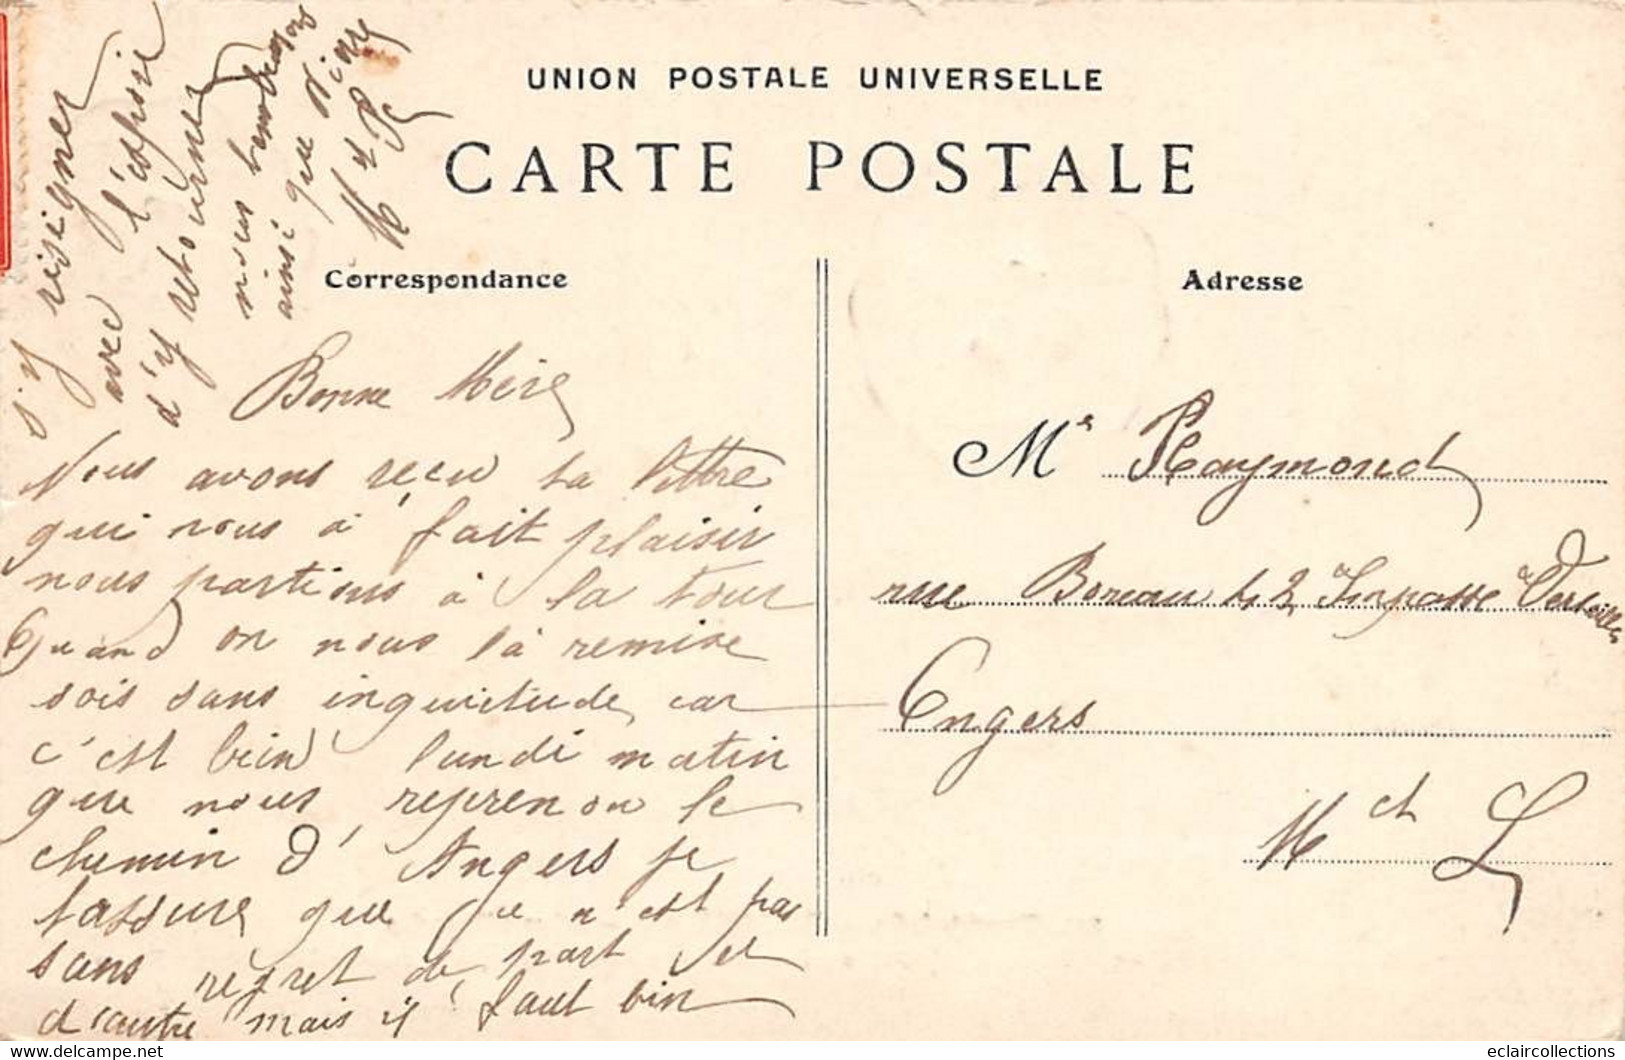 UNION POSTALE UNIVERSELLE
CARTE POSTALE
Correspondance
Adresse
Bonne Mère
Nous avons reçu ta lettre
qui nous à fait plaisir
nous partions à la Tour
Quand on nous là remise
sois sans inquietude, car
c'est bien lundi matin
que nous reprenou le
chemin d'Angers je
tassure que ce n'est pas
sans regret de part et
d'autre mais il faut bin
s'y résigner
avec l'espoir
d'y retourner
nous
ainsi que
M et
Mr Raymond
rue Boreau 42 Impasse
Engers
M et L
eclaircollections
delcampe.net